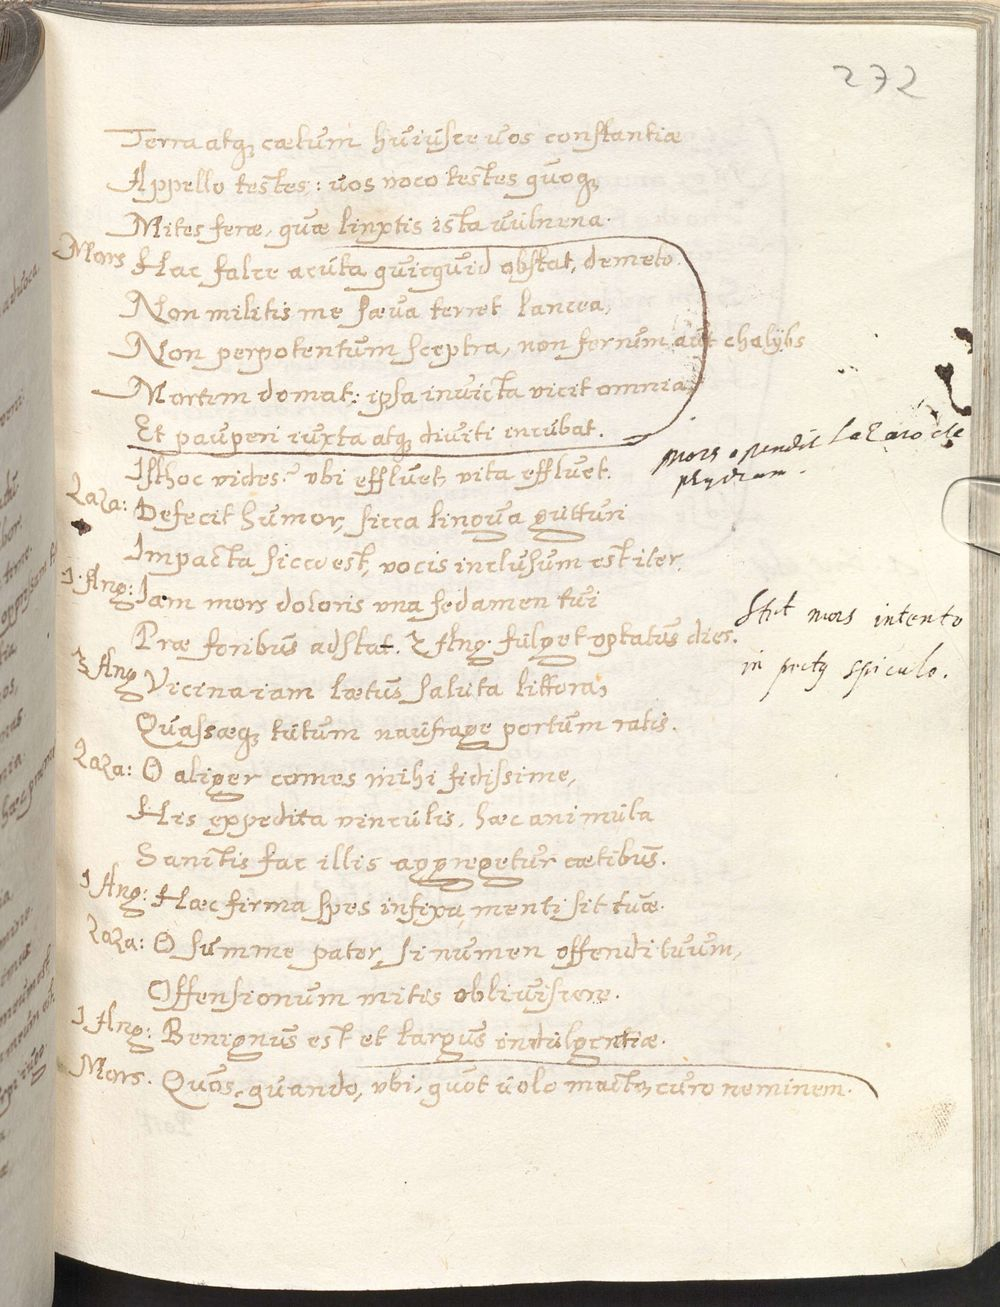 272
Terra atq; cælum huiusce vos constantiæ
Appello testes: vos voco testes quoq;
Mites feræ, quæ linxtis ista vulnera.
Mors Hac falce acuta quicquid obstat, demeto.
Non militis me sæva terret lancea,
Non perpotentum sceptra, non ferrum aut chalybs
Mortem domat: ipsa invicta vicit omnia,
Et pauperi iuxta atq; diviti incubat.
Isthoc vides? vbi effluet, vita effluet.
Mors ostendit Lazaro cle
psydram.
Laza: Defecit humor, sicca lingua gutturi
Impacta sicco est, vocis inclusum est iter.
1. Ang: Iam mors doloris vna sedamen tui
Præ foribus adstat. 2 Ang. fulget optatus dies.
Stat mors intento
in spiculo.
3 Ang Vicina iam lætus saluta littora,
Quassæq; tutum naufragæ portum ratis.
Laza: O aliger comes mihi fidissime,
His expedita vinculis, hæc animula
Sanctis fac illis aggregetur cœtibus.
1 Ang: Hæc firma spes infixa menti sit tuæ.
Laza: O summe pater, si numen offendi tuum,
Offensionum mitis obliviscere.
1 Ang: Benignus est et largus indulgentiæ.
Mors. Quos, quando, vbi, quot volo macto, curo neminem.